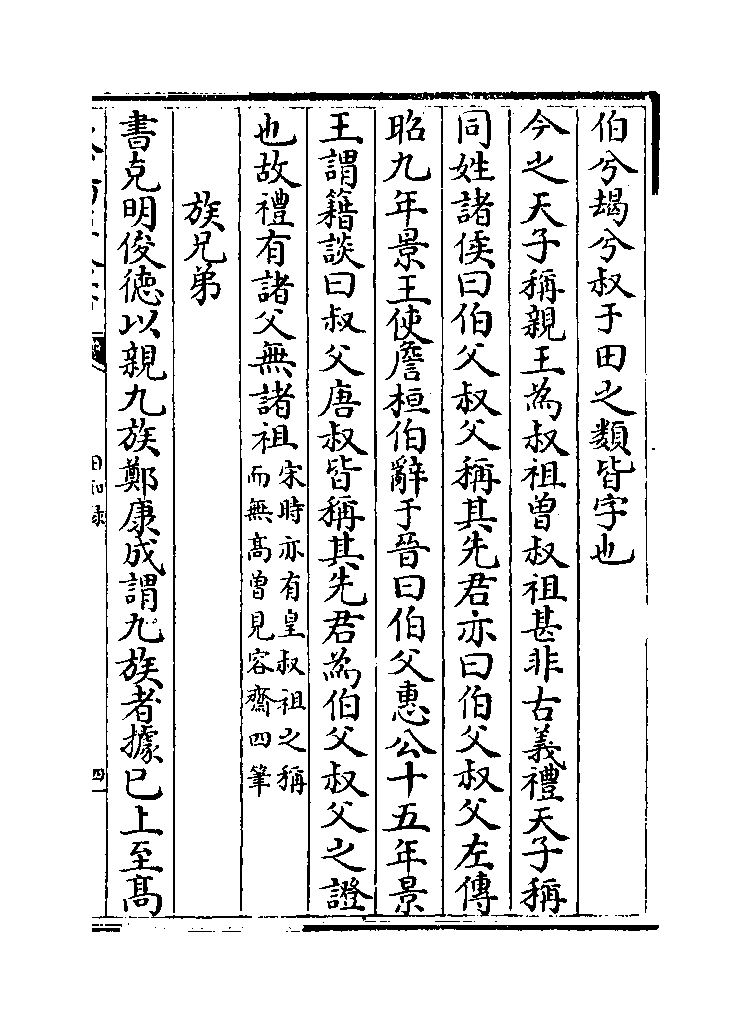 伯兮朅兮叔于田之類皆字也
今之天子稱親王為叔祖曾叔祖甚非古義禮天子稱
同姓諸侯曰伯父叔父稱其先君亦曰伯父叔父左傳
昭九年景王使詹桓伯辭于晉曰伯父惠公十五年景
王謂籍談曰叔父唐叔皆稱其先君為伯父叔父之證
也故禮有諸父無諸祖宋時亦有皇叔祖之稱
而無高曾見容齋四筆
族兄弟
書克明俊徳以親九族鄭康成謂九族者據已上至髙
日知録
四